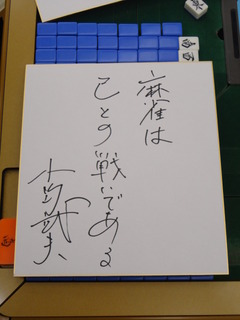 麻雀は
己との戦いである
小島武夫